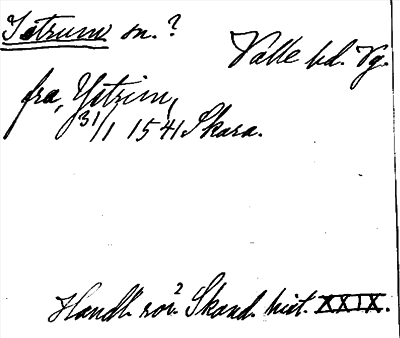 Istrum sn.?
Valle hd. Vg.
fra, Ystrim,
31/1 1541 Skara.
Handl. rör. Skand. hist. XXIX.